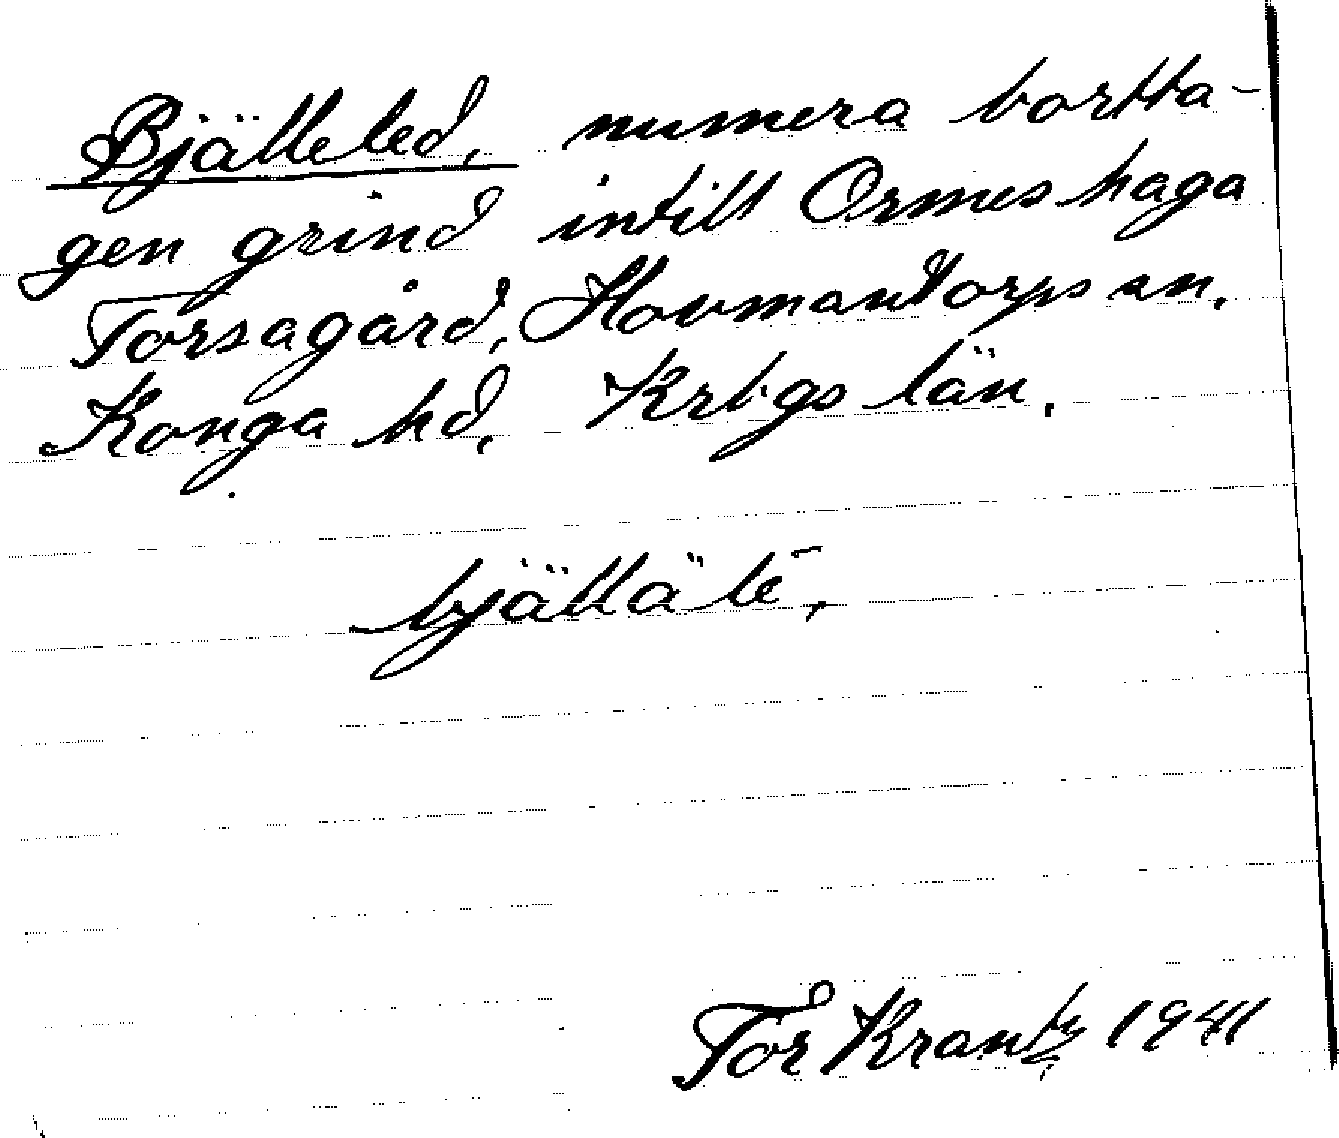 Bjälleled, numera bortta-
gen grind intill Ormeshaga
Torsagård, Hovmantorps sn,
Konga hd, Krbgs län.
bjällälē,
Tor Krantz 1941